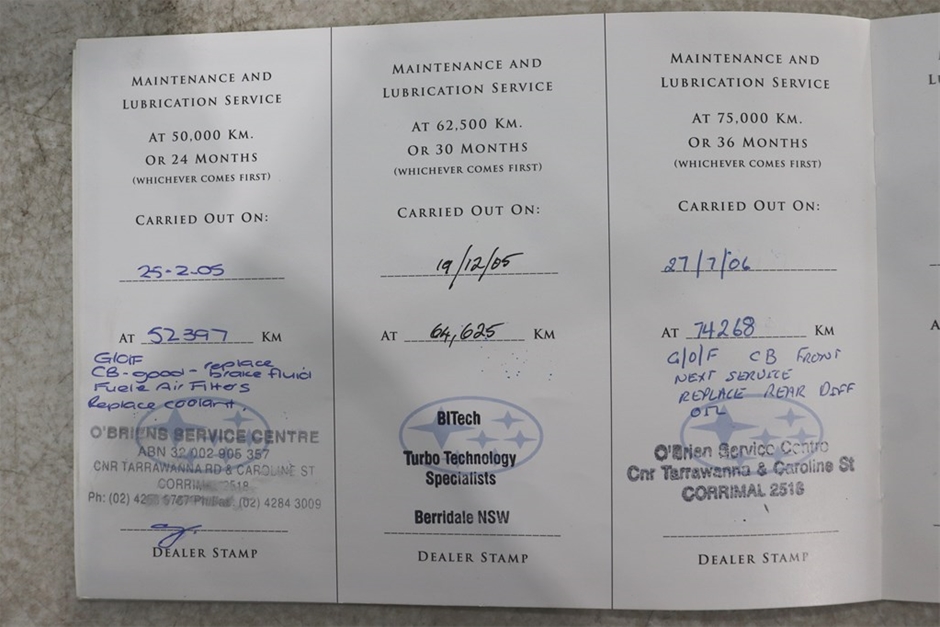 MAINTENANCE AND
LUBRICATION SERVICE
AT 50,000 KM.
OR 24 MONTHS
(WHICHEVER COMES FIRST)
CARRIED OUT ON:
25-2-05
AT 52397 KM
G/O/F
CB-good- replace
brake fluid
Fuel & Air Filters
Replace coolant.
O'BRIENS SERVICE CENTRE
ABN 32 002 905 357
CNR TARRAWANNA RD & CAROLINE ST
CORRIMAL 2518
Ph: (02) (02) 4284 3009
DEALER STAMP
MAINTENANCE AND
LUBRICATION SERVICE
AT 62,500 KM.
OR 30 MONTHS
(WHICHEVER COMES FIRST)
CARRIED OUT ON:
19/12/05
AT 64,625 KM
BITech
Turbo Technology
Specialists
Berridale NSW
DEALER STAMP
MAINTENANCE AND
LUBRICATION SERVICE
AT 75,000 KM.
OR 36 MONTHS
(WHICHEVER COMES FIRST)
CARRIED OUT ON:
27/7/06
AT 74268 KM
G/O/F CB FRONT
NEXT SERVICE
REPLACE REAR DIFF
OIL
O'Brien Service Centre
Cnr Tarrawanna & Caroline St
CORRIMAL 2518
DEALER STAMP